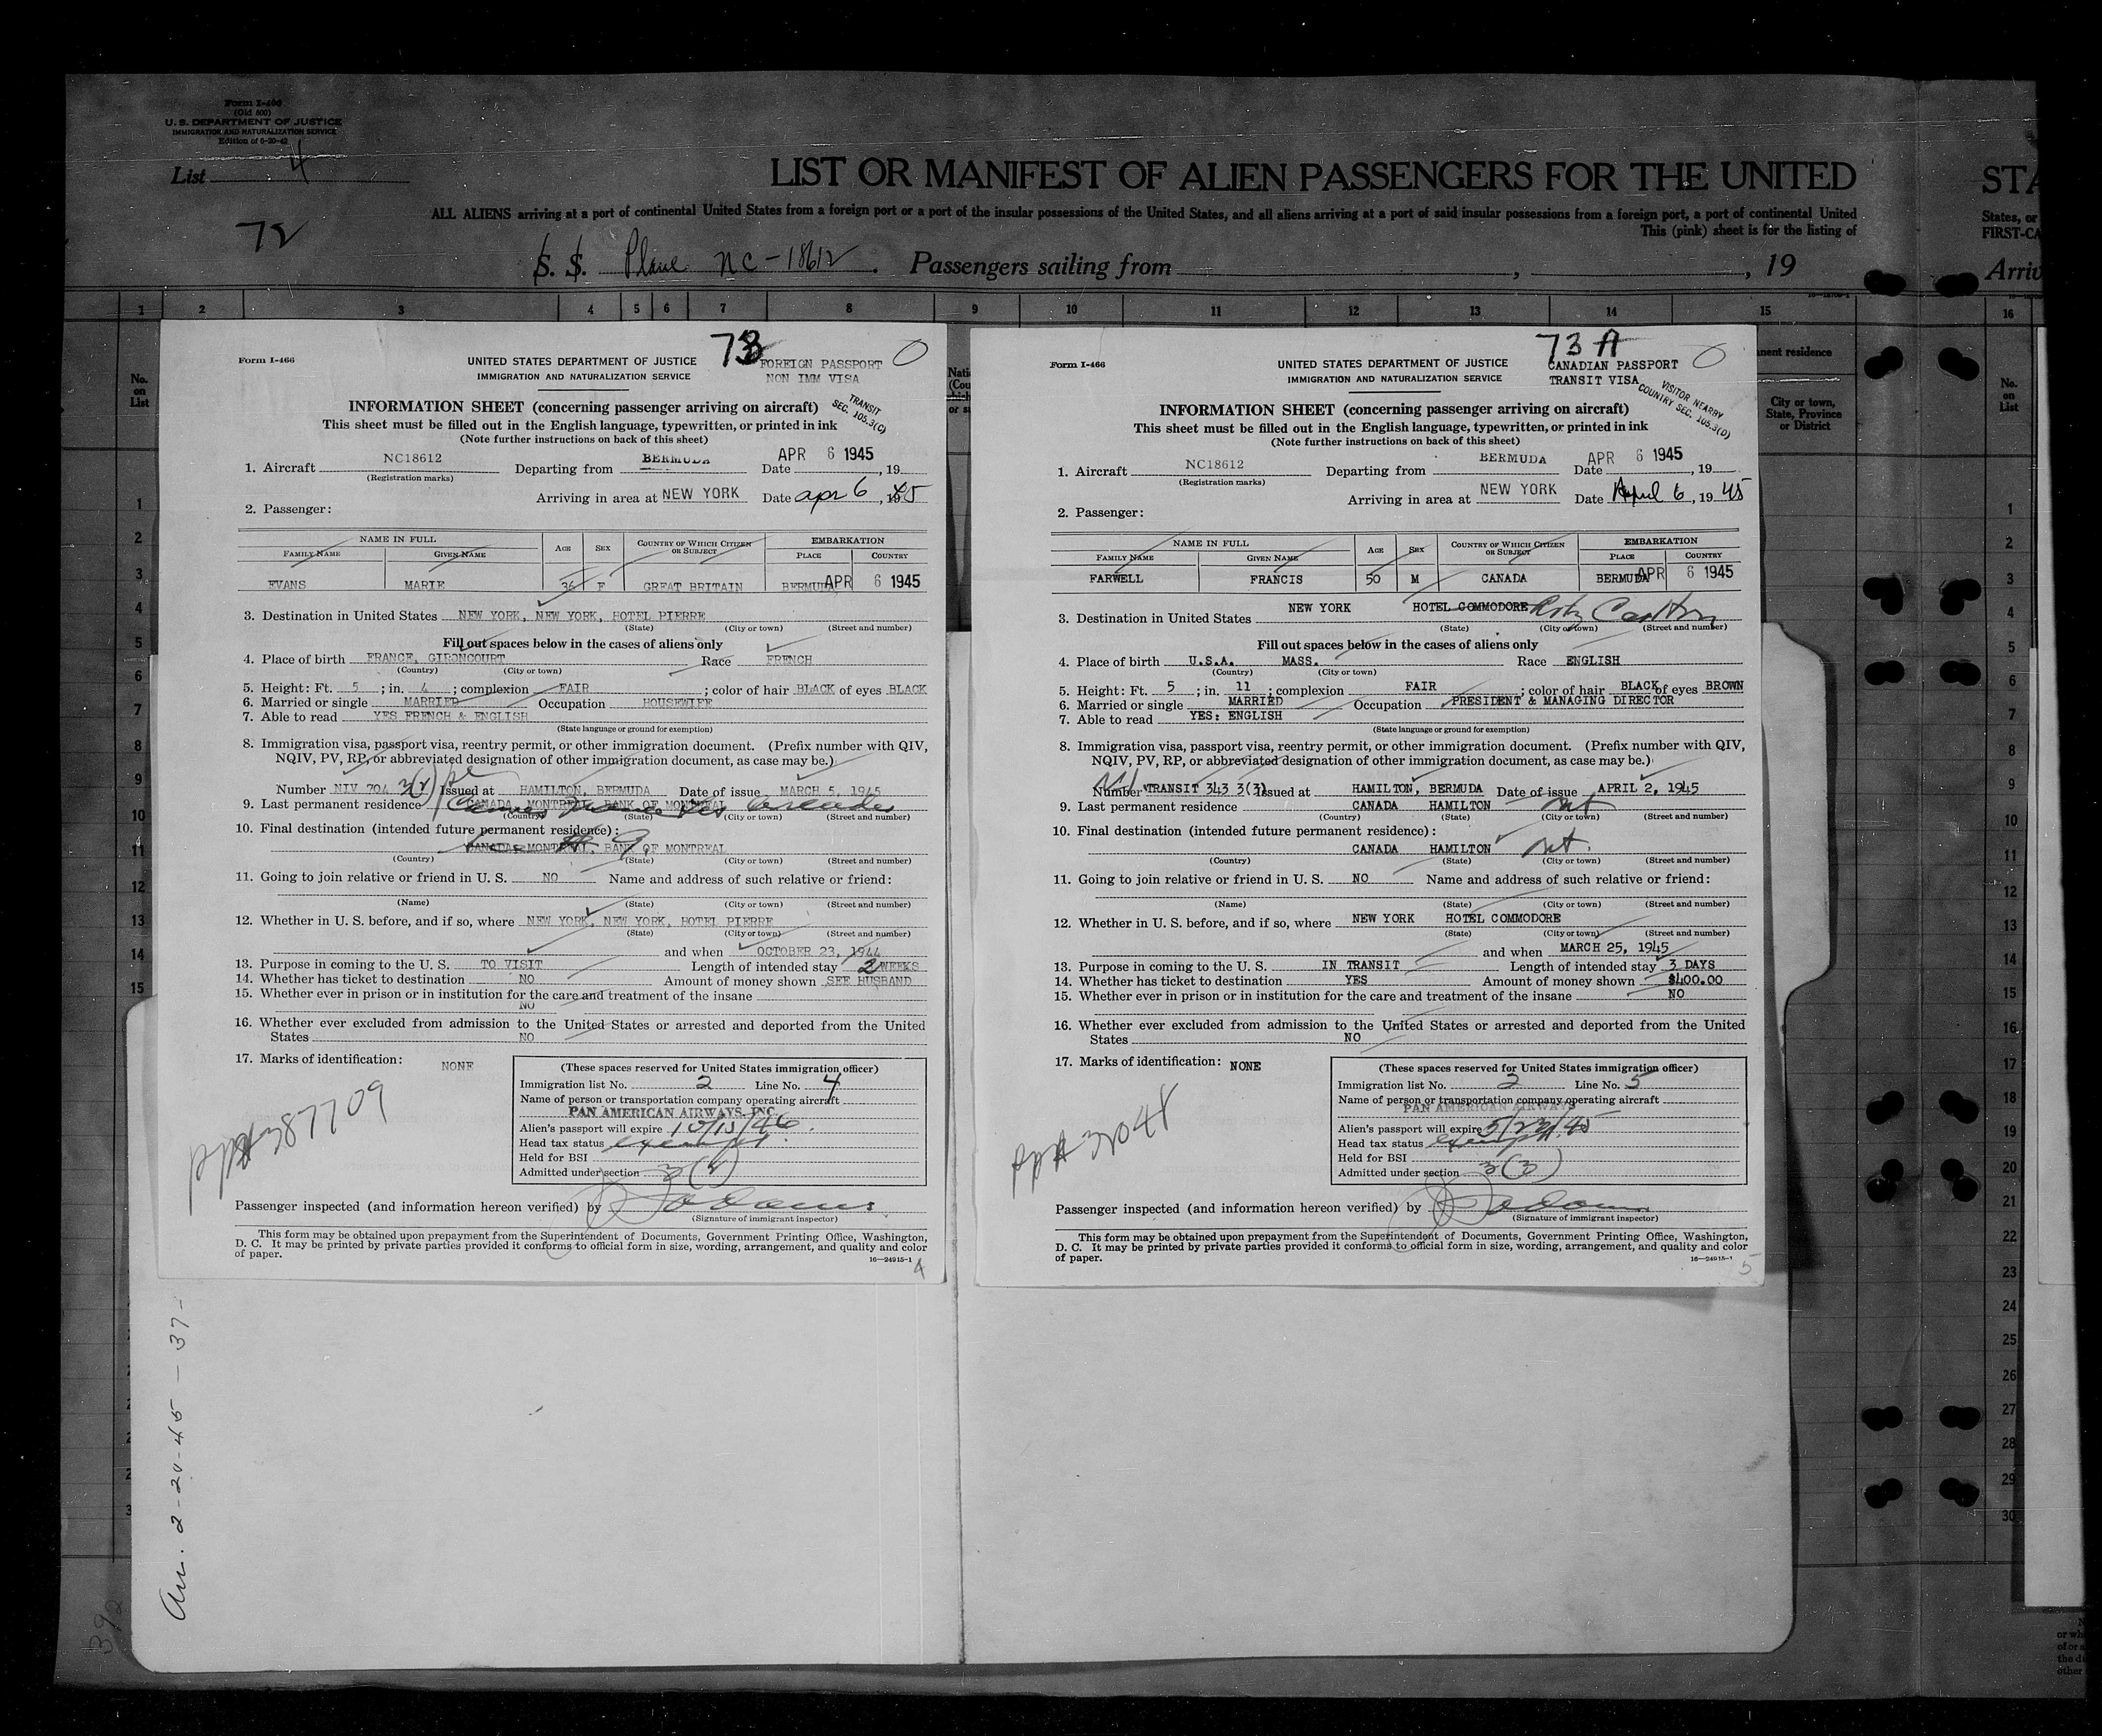 Form I-466
(Old 500)
U. S. DEPARTMENT OF JUSTICE
IMMIGRATION AND NATURALIZATION SERVICE
Edition of 6-20-42
List 4
LIST OR MANIFEST OF ALIEN PASSENGERS FOR THE UNITED
STA
ALL ALIENS arriving at a port of continental United States from a foreign port or a port of the insular possessions of the United States, and all aliens arriving at a port of said insular possessions from a foreign port, a port of continental United
States, or
This (pink) sheet is for the listing of
FIRST-CA
72
S. S. Plane NC-18612. Passengers sailing from , , 19
Arriv
1 2 3 4 5 6 7 8 9 10 11 12 13 14 15 16
No. on List
73
FOREIGN PASSPORT
NON IMM VISA
Form I-466
UNITED STATES DEPARTMENT OF JUSTICE
IMMIGRATION AND NATURALIZATION SERVICE
TRANSIT
SEC. 105.3(C)
INFORMATION SHEET (concerning passenger arriving on aircraft)
This sheet must be filled out in the English language, typewritten, or printed in ink
(Note further instructions on back of this sheet)
1. Aircraft NC18612 Departing from BERMUDA Date APR 6 1945, 19
(Registration marks)
Arriving in area at NEW YORK Date Apr 6, 1945
2. Passenger:
NAME IN FULL AGE SEX COUNTRY OF WHICH CITIZEN OR SUBJECT EMBARKATION
FAMILY NAME GIVEN NAME PLACE COUNTRY
EVANS MARIE 36 F GREAT BRITAIN BERMUDA APR 6 1945
3. Destination in United States NEW YORK, NEW YORK, HOTEL PIERRE
(State) (City or town) (Street and number)
Fill out spaces below in the cases of aliens only
4. Place of birth FRANCE, GIRONCOURT Race FRENCH
(Country) (City or town)
5. Height: Ft. 5; in. 4; complexion FAIR; color of hair BLACK of eyes BLACK
6. Married or single MARRIED Occupation HOUSEWIFE
7. Able to read YES FRENCH & ENGLISH
(State language or ground for exemption)
8. Immigration visa, passport visa, reentry permit, or other immigration document. (Prefix number with QIV,
NQIV, PV, RP, or abbreviated designation of other immigration document, as case may be.)
Number NIV 704 3(2) Issued at HAMILTON, BERMUDA Date of issue MARCH 5, 1945
9. Last permanent residence CANADA, MONTREAL, BANK OF MONTREAL
(Country) (State) (City or town) (Street and number)
10. Final destination (intended future permanent residence):
CANADA, MONTREAL, BANK OF MONTREAL
(Country) (State) (City or town) (Street and number)
11. Going to join relative or friend in U. S. NO Name and address of such relative or friend:
(Name) (State) (City or town) (Street and number)
12. Whether in U. S. before, and if so, where NEW YORK, NEW YORK, HOTEL PIERRE
(State) (City or town) (Street and number)
and when OCTOBER 23, 1944
13. Purpose in coming to the U. S. TO VISIT Length of intended stay 2 WEEKS
14. Whether has ticket to destination NO Amount of money shown SEE HUSBAND
15. Whether ever in prison or in institution for the care and treatment of the insane
NO
16. Whether ever excluded from admission to the United States or arrested and deported from the United
States NO
17. Marks of identification: NONE
(These spaces reserved for United States immigration officer)
Immigration list No. 2 Line No. 4
Name of person or transportation company operating aircraft
PAN AMERICAN AIRWAYS, INC.
Alien's passport will expire 10/13/46.
Head tax status exempt
Held for BSI
Admitted under section 3(2)
ppt# 387709
Passenger inspected (and information hereon verified) by
(Signature of immigrant inspector)
This form may be obtained upon prepayment from the Superintendent of Documents, Government Printing Office, Washington,
D. C. It may be printed by private parties provided it conforms to official form in size, wording, arrangement, and quality and color
of paper.
16—24915-1
4
73 A
CANADIAN PASSPORT
TRANSIT VISA
Form I-466
UNITED STATES DEPARTMENT OF JUSTICE
IMMIGRATION AND NATURALIZATION SERVICE
VISITOR NEARBY
COUNTRY SEC. 105.3(D)
INFORMATION SHEET (concerning passenger arriving on aircraft)
This sheet must be filled out in the English language, typewritten, or printed in ink
(Note further instructions on back of this sheet)
1. Aircraft NC18612 Departing from BERMUDA Date APR 6 1945, 19
(Registration marks)
Arriving in area at NEW YORK Date April 6, 1945
2. Passenger:
NAME IN FULL AGE SEX COUNTRY OF WHICH CITIZEN OR SUBJECT EMBARKATION
FAMILY NAME GIVEN NAME PLACE COUNTRY
FARWELL FRANCIS 50 M CANADA BERMUDA APR 6 1945
3. Destination in United States NEW YORK HOTEL COMMODORE Ritz Carlton
(State) (City or town) (Street and number)
Fill out spaces below in the cases of aliens only
4. Place of birth U.S.A. MASS. Race ENGLISH
(Country) (City or town)
5. Height: Ft. 5; in. 11; complexion FAIR; color of hair BLACK of eyes BROWN
6. Married or single MARRIED Occupation PRESIDENT & MANAGING DIRECTOR
7. Able to read YES: ENGLISH
(State language or ground for exemption)
8. Immigration visa, passport visa, reentry permit, or other immigration document. (Prefix number with QIV,
NQIV, PV, RP, or abbreviated designation of other immigration document, as case may be.)
Number TRANSIT 343 3(3) Issued at HAMILTON, BERMUDA Date of issue APRIL 2, 1945
9. Last permanent residence CANADA HAMILTON Ont
(Country) (State) (City or town) (Street and number)
10. Final destination (intended future permanent residence):
CANADA HAMILTON Ont.
(Country) (State) (City or town) (Street and number)
11. Going to join relative or friend in U. S. NO Name and address of such relative or friend:
(Name) (State) (City or town) (Street and number)
12. Whether in U. S. before, and if so, where NEW YORK HOTEL COMMODORE
(State) (City or town) (Street and number)
and when MARCH 25, 1945
13. Purpose in coming to the U. S. IN TRANSIT Length of intended stay 3 DAYS
14. Whether has ticket to destination YES Amount of money shown $400.00
15. Whether ever in prison or in institution for the care and treatment of the insane NO
16. Whether ever excluded from admission to the United States or arrested and deported from the United
States NO
17. Marks of identification: NONE
(These spaces reserved for United States immigration officer)
Immigration list No. 2 Line No. 5
Name of person or transportation company operating aircraft
PAN AMERICAN AIRWAYS
Alien's passport will expire 5/23/45
Head tax status exempt
Held for BSI
Admitted under section 3(3)
ppt# 32048
Passenger inspected (and information hereon verified) by
(Signature of immigrant inspector)
This form may be obtained upon prepayment from the Superintendent of Documents, Government Printing Office, Washington,
D. C. It may be printed by private parties provided it conforms to official form in size, wording, arrangement, and quality and color
of paper.
16—24915-1
5
nent residence
City or town, State, Province or District
No. on List
Arr. 2-20-45-37-
392